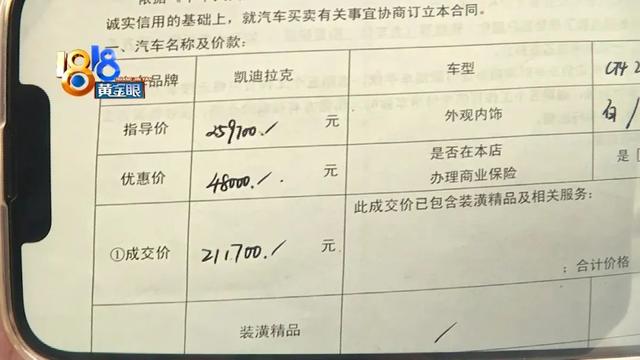 诚实信用的基础上，就汽车买卖有关事宜协商订立本合同。
一、汽车名称及价款：
1818
黄金眼
品牌 凯迪拉克 车型 CT4
指导价 259700./ 元 外观内饰 白/
优惠价 48000./ 元 是否在本店办理商业保险 是
①成交价 211.700./ 元 此成交价已包含装潢精品及相关服务：
；合计价格
装潢精品 /